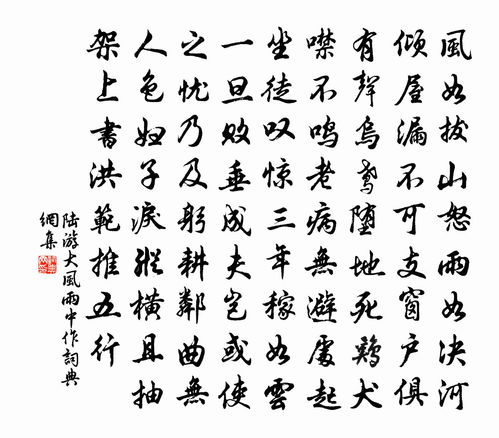 風如拔山怒雨如决河
傾屋漏不可支窗户俱
有聲烏鳶墮地死鷄犬
噤不鳴老病無避處起
坐徒叹惊三年稼如雲
一旦败垂成夫岂或使
之忧乃及躬耕鄰曲無
人色妇子淚縱橫且抽
架上書洪範推五行
陸游大風雨中作詞典
網集